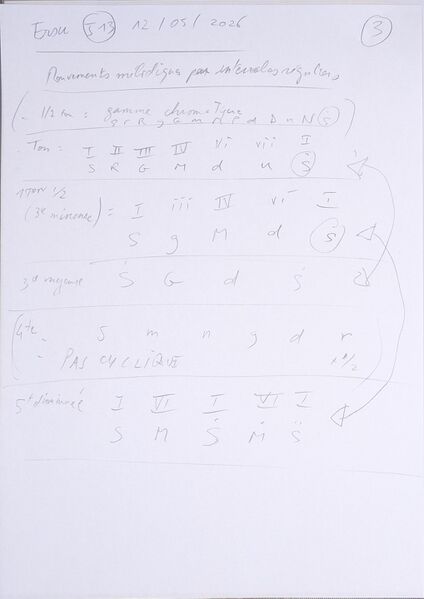 Ersu S13 12/05/2026 3
Mouvements mélodiques par intervalles réguliers
(- 1/2 ton : gamme chromatique
S r R g G m M P d D n N Ṡ)
- Ton : I II III IV vi vii I
S R G M d n Ṡ
1 TON 1/2 I iii IV vi I
(3ce mineure) = S g M d Ṡ
3ce majeure S G d Ṡ
(4te - S m n g d r
- PAS CYCLIQUE 1/2
5te diminuée I VI I VI I
S M Ṡ Ṁ S̈